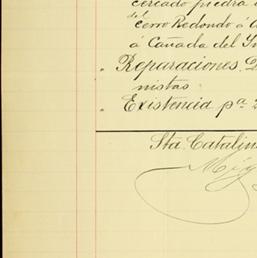 cercado piedra
del
Cerro Redondo á
á Cañada del
" Reparaciones.
nistas
" Existencia pª
Sta. Catalin
Mig